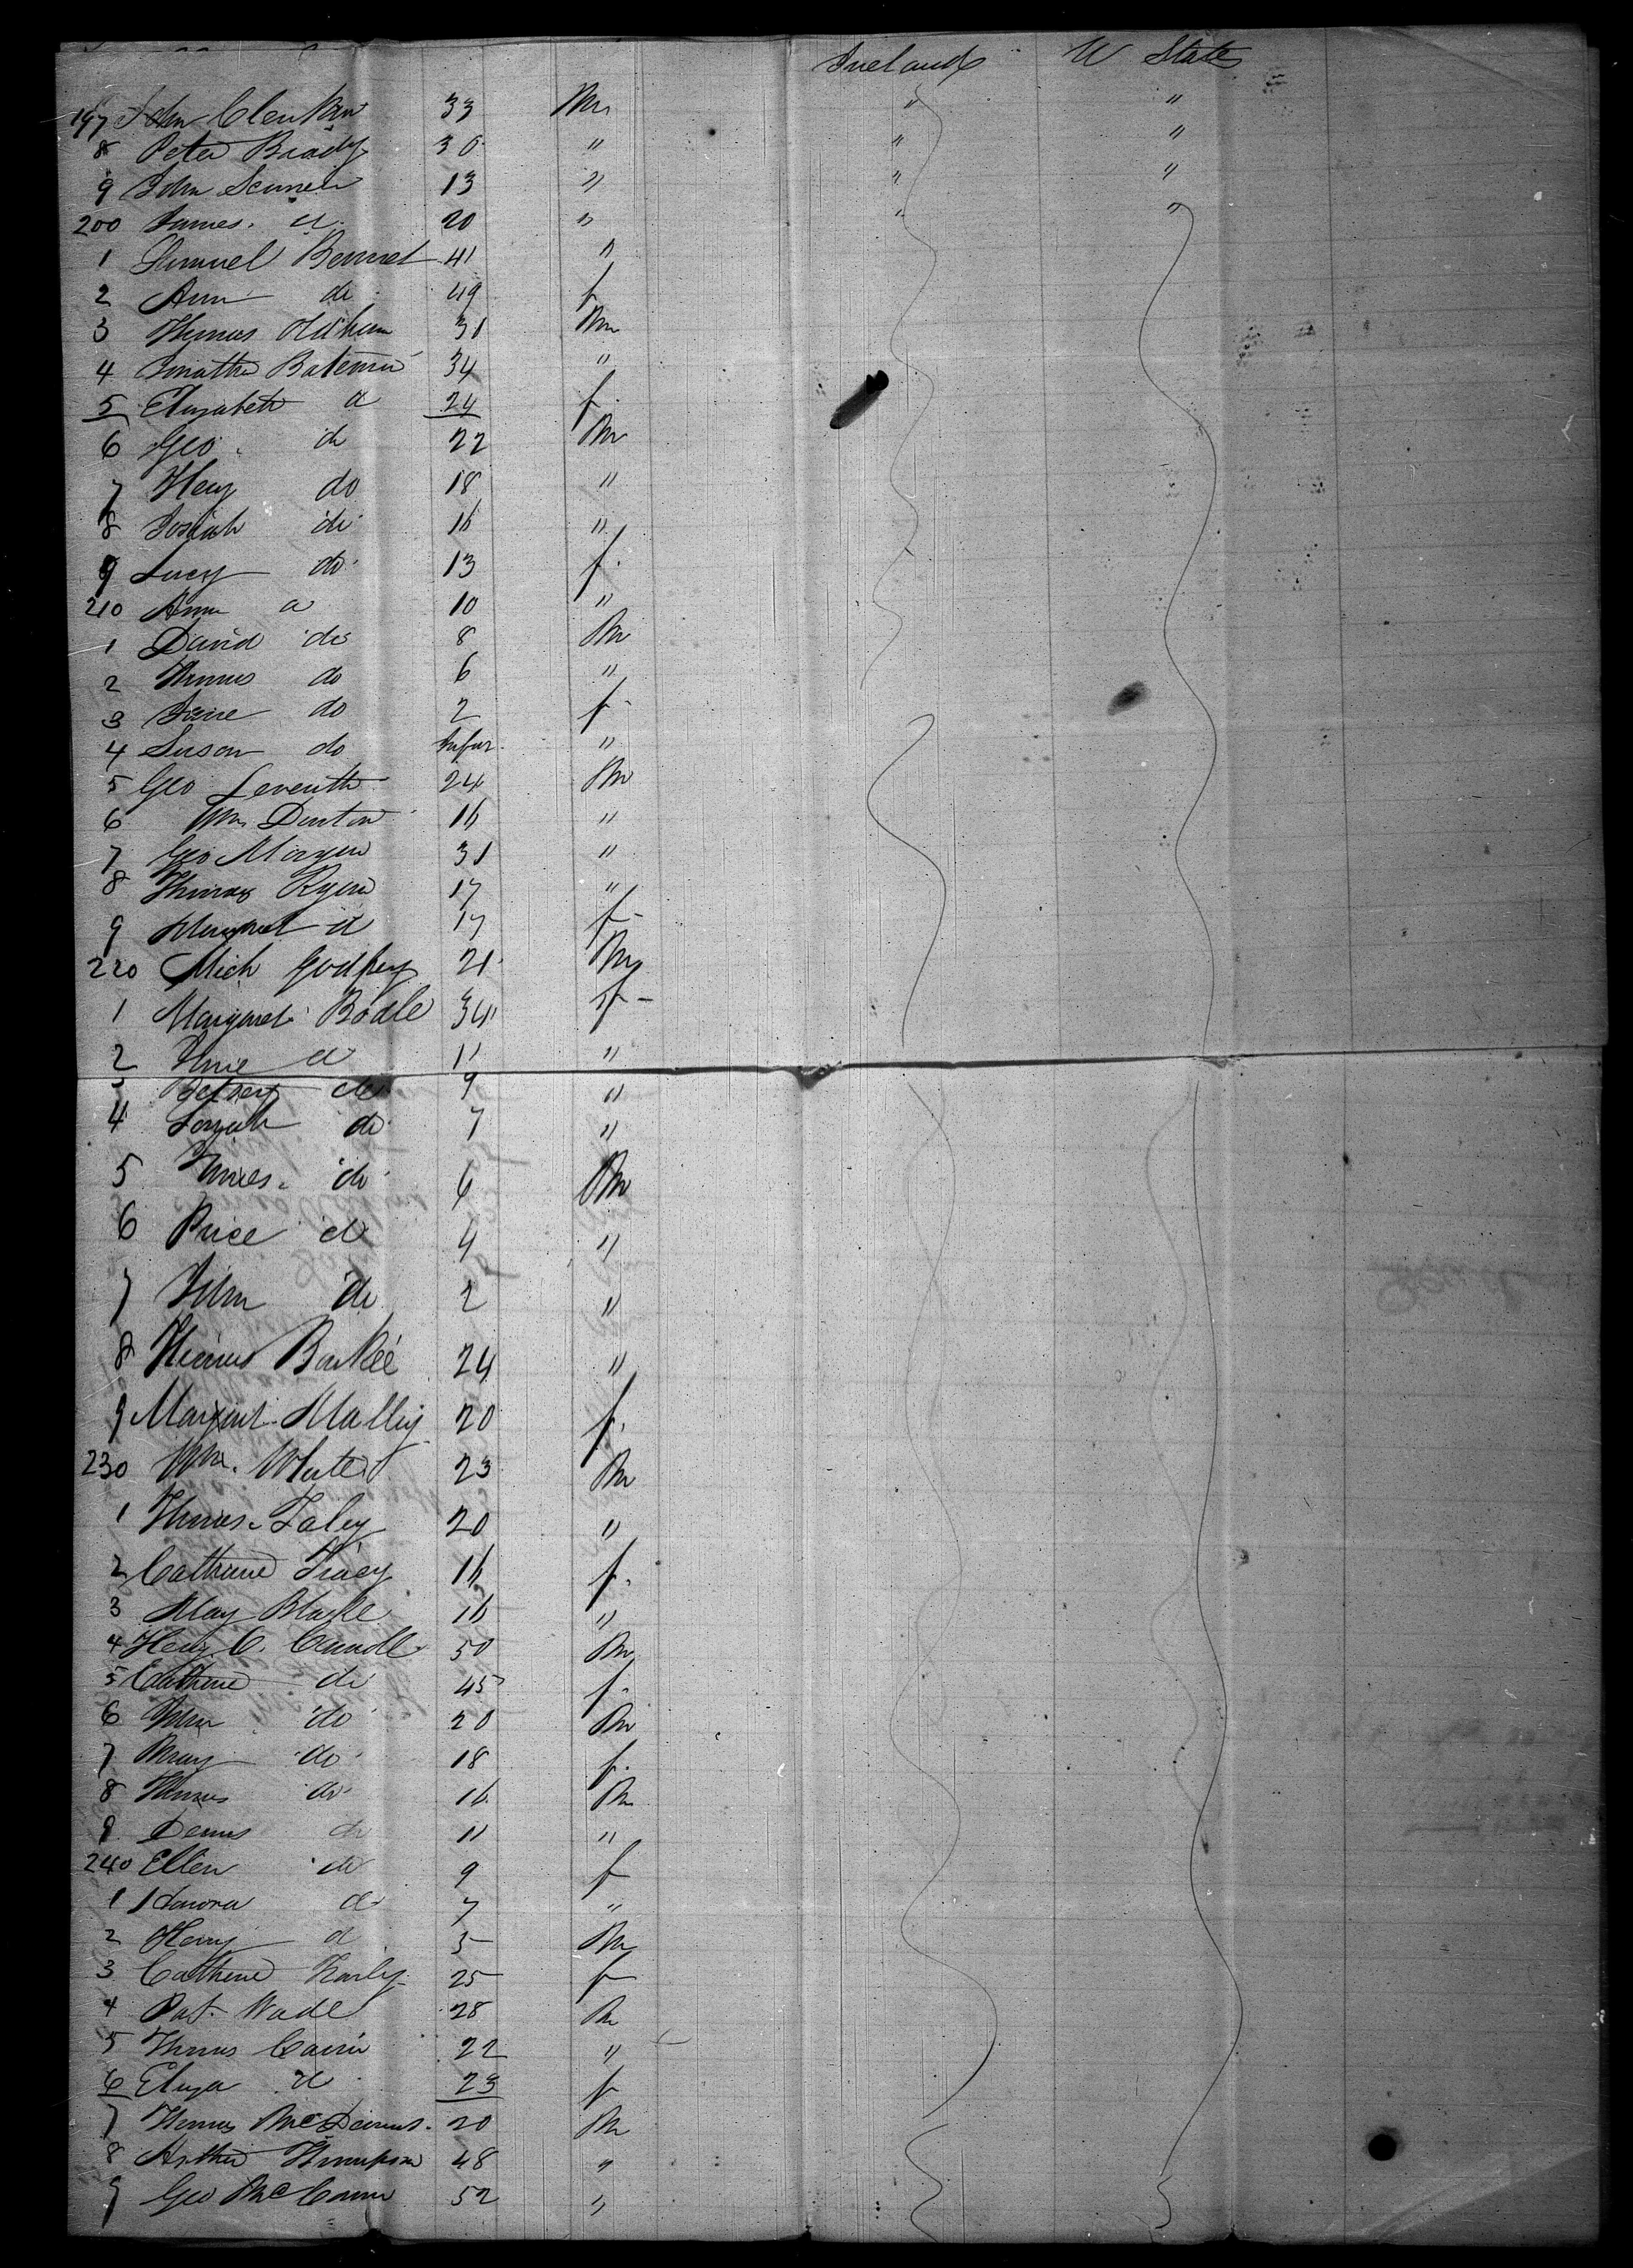 Ireland U States
197 John Clenkin 33 M " "
8 Peter Brady 36 " " "
9 John 13 " " "
200 James 20 " " "
1 Samuel Bennet 41 "
2 Ann do 49 f
3 Thomas Oldham 31 M
4 Bateman 34 "
5 Elizabeth d 24 f
6 Geo do 22 M
7 Heny do 18 "
8 Josiah do 16 "
9 Lucy do 13 f
210 Ann d 10 "
1 David do 8 M
2 Thomas do 6 "
3 Jane do 2 f
4 Susan do Infan "
5 Geo 24 M
6 Wm Denton 16 "
7 Geo Morgan 31 "
8 Thomas Ryan 17 "
9 Margaret d 17 f
220 Mich Godfrey 21 M
1 Margaret Bodle 34 f
2 d 11 "
3 Betsey do 9 "
4 do 7 "
5 do 6 M
6 Price d 4 "
7 John do 2 "
8 Thomas 24 "
9 Margaret Mally 20 f
230 Wm. White 23 M
1 Thomas Foley 20 "
2 Catherine Tracy 16 f
3 May Blake 16 "
4 Heny C. 50 M
5 Catherine do 45 f
6 John do 20 M
7 Mary do 18 f
8 Thomas do 16 M
9 Denis do 11 "
240 Ellen do 9 f
1 Honora d 7 "
2 Henry d 5 M
3 Catherine 25 f
4 Pat. Wade 28 M
5 Thomas 22 "
6 Eliza d 23 f
7 Thomas McDermot 20 M
8 Arthur Thompson 48 "
9 Geo 52 "